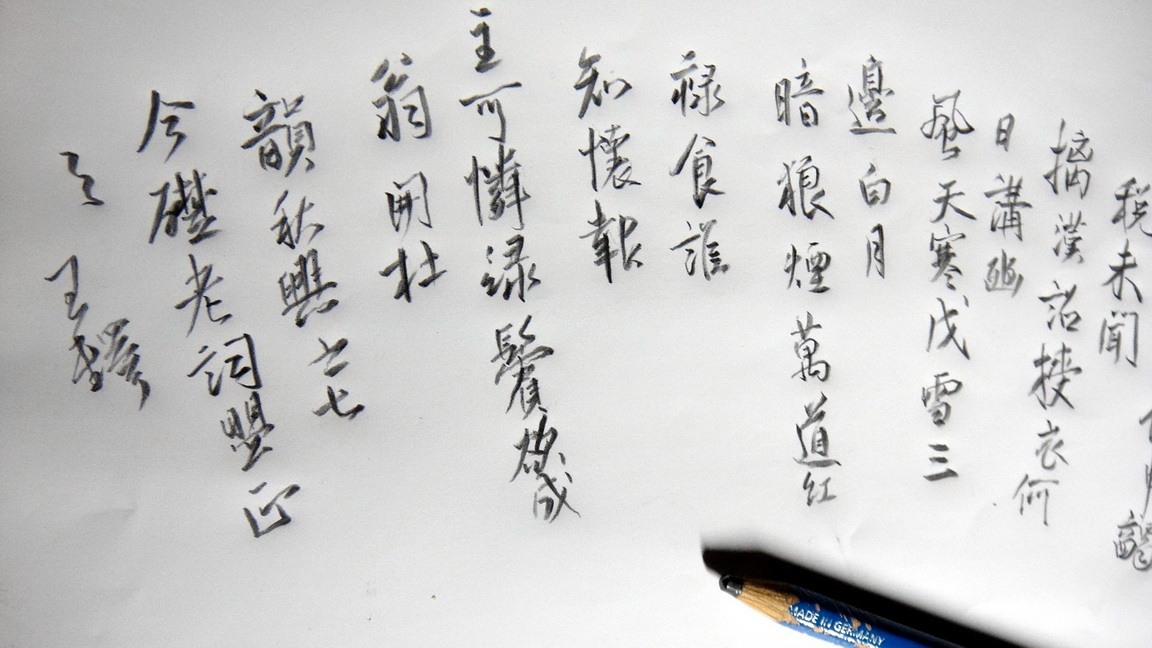 税未聞
摘漢詔授衣何
日講豳
風天寒戊雪三
邊白月
暗狼煙萬道紅
祿食誰
知懷報
主可憐綠鬢欲成
翁開杜
韻秋興之七
今礎老詞盟正
之 王
MADE IN GERMANY